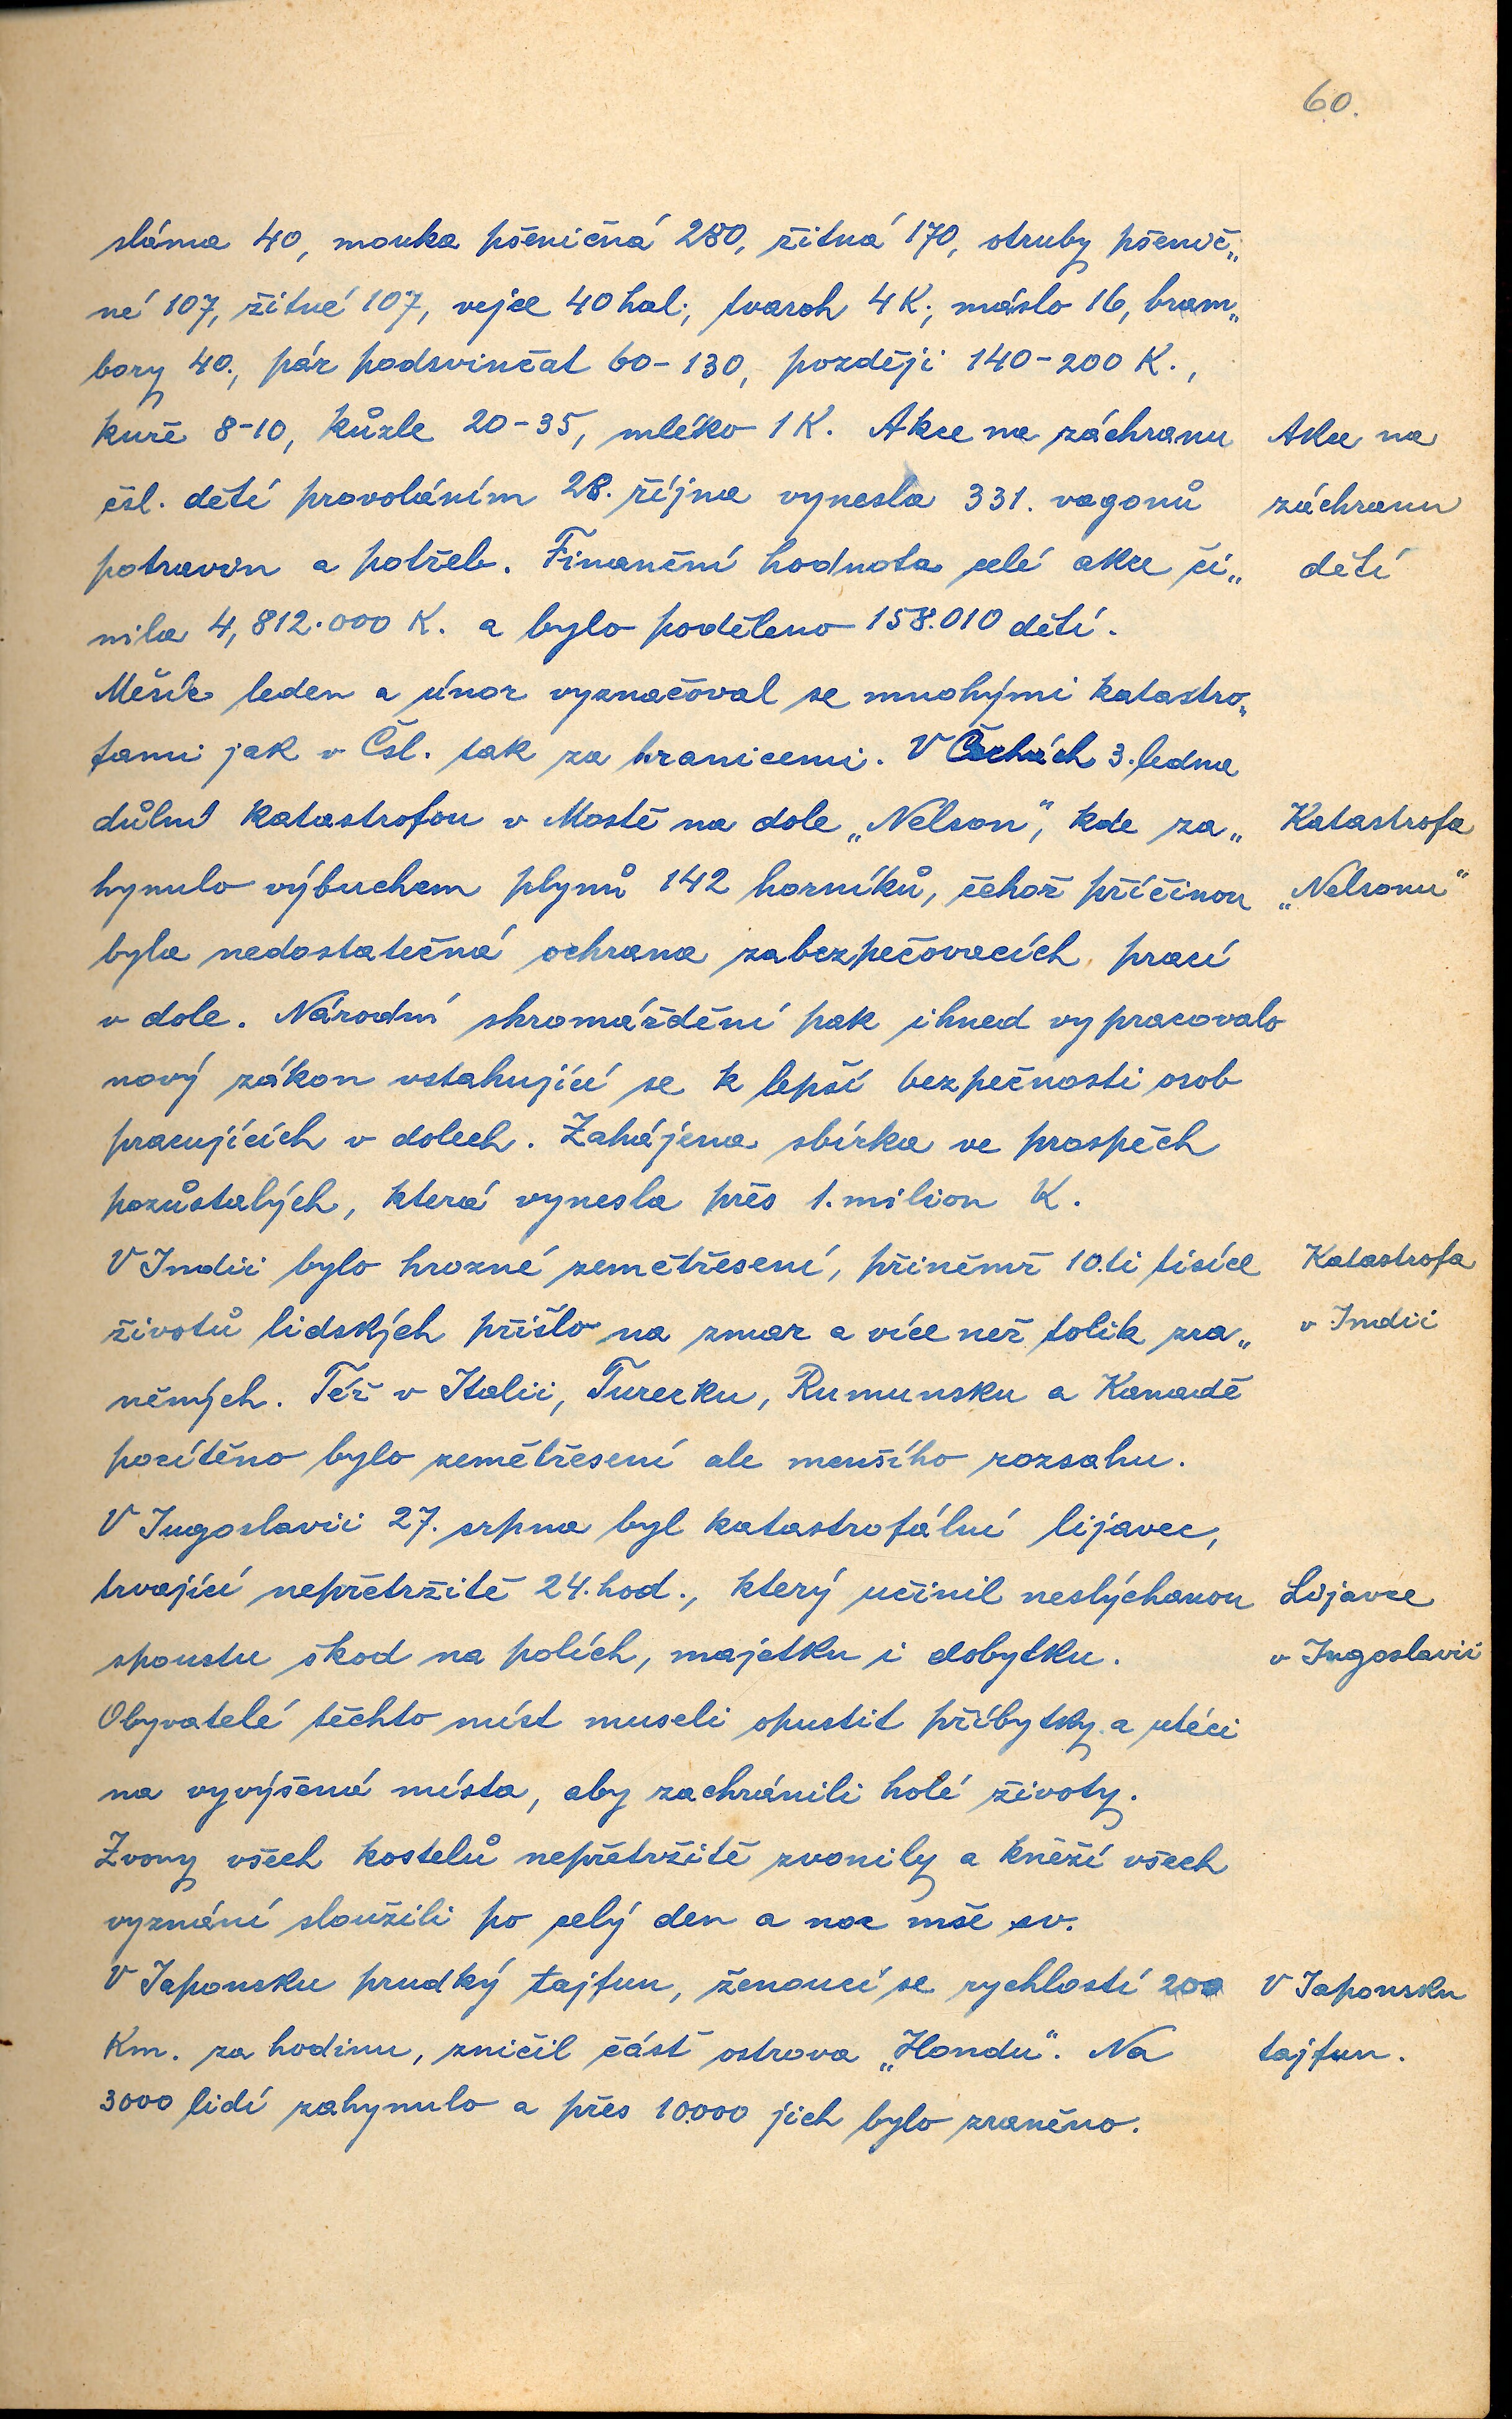 60.
sláma 40, mouka pšeničná 280, žitná 170, otruby pšenič„
né 107, žitné 107, vejce 40 hal., tvaroh 4 K., máslo 16, bram„
bory 40., pár podsvinčat 60-130, později 140-200 K.,
kuře 8-10, kůzle 20-35, mléko 1 K. Akce na záchranu
Akce na
čsl. dětí provoláním 28. října vynesla 331. vagonů
záchranu
potravin a potřeb. Finanční hodnota celé akce či„
dětí
nila 4,812.000 K. a bylo poděleno 158.010 dětí.
Měsíc leden a únor vyznačoval se mnohými katastro„
fami jak v Čsl. tak za hranicemi. V Čechách 3. ledna
důlní katastrofou v Mostě na dole „Nelson“, kde za„
Katastrofa
hynulo výbuchem plynů 142 horníků, čehož příčinou
„Nelsonu“
byla nedostatečná ochrana zabezpečovacích prací
v dole. Národní shromáždění pak ihned vypracovalo
nový zákon vstahující se k lepší bezpečnosti osob
pracujících v dolech. Zahájena sbírka ve prospěch
pozůstalých, která vynesla přes 1. milion K.
V Indii bylo hrozné zemětřesení, přiněmž 10.ti tisíce
Katastrofa
životů lidských přišlo na zmar a více než tolik zra„
v Indii
něných. Též v Italii, Turecku, Rumunsku a Kanadě
pocítěno bylo zemětřesení ale menšího rozsahu.
V Jugoslavii 27. srpna byl katastrofální lijavec,
trvající nepřetržitě 24. hod., který učinil neslýchanou
Lijavce
spoustu škod na polích, majetku i dobytku.
v Jugoslavii
Obyvatelé těchto míst museli opustit příbytky a utéci
na vyvýšená místa, aby zachránili holé životy.
Zvony všech kostelů nepřetržitě zvonily a kněží všech
vyznání sloužili po celý den a noc mše sv.
V Japonsku prudký tajfun, ženoucí se rychlostí 200
V Japonsku
Km. za hodinu, zničil část ostrova „Hondu“. Na
tajfun.
3000 lidí zahynulo a přes 10.000 jich bylo zraněno.